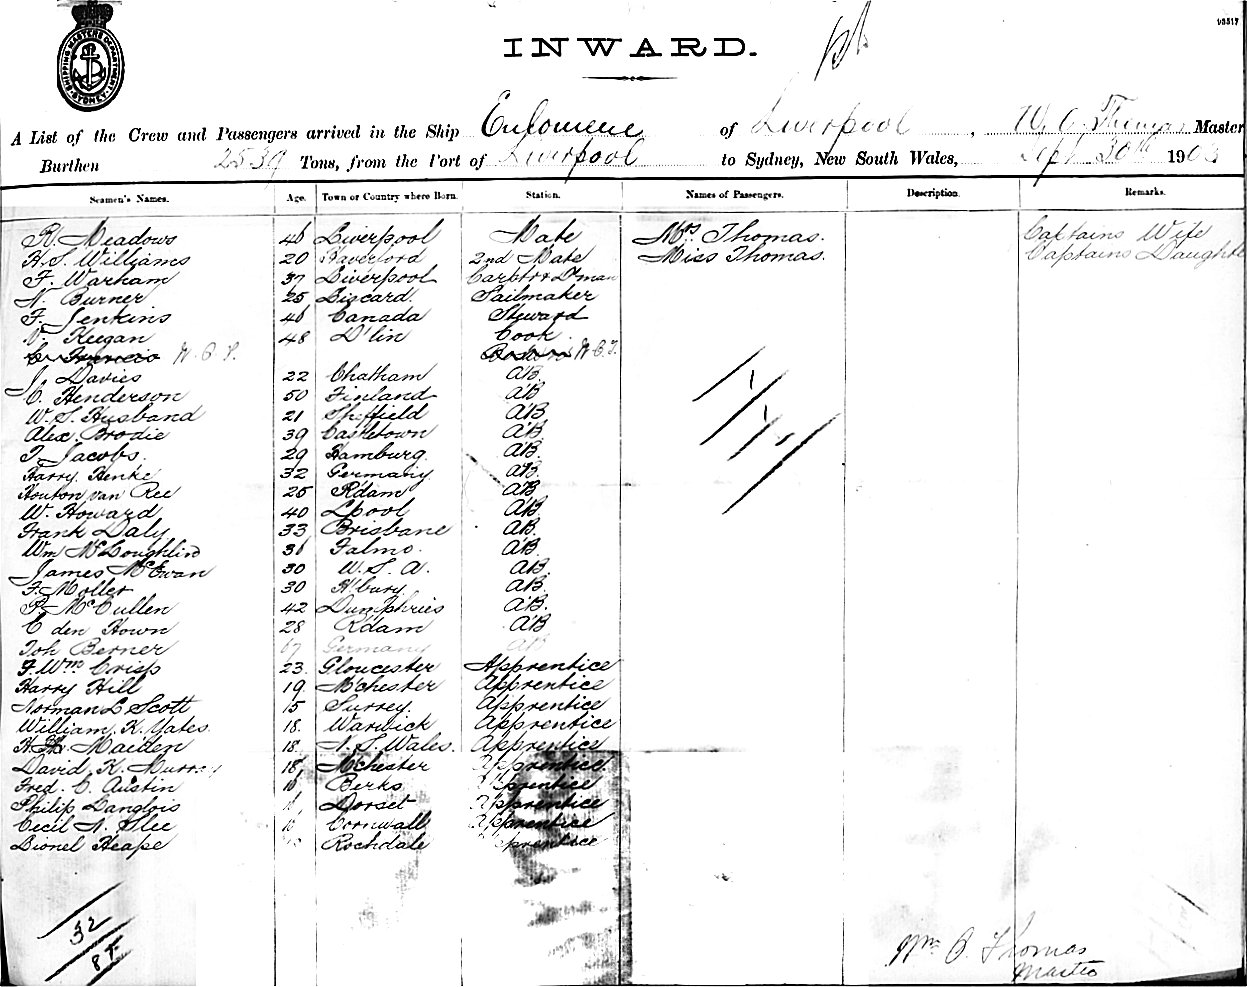 SHIPPING MASTERS DEPARTMENT
SYDNEY
INWARD.
A List of the Crew and Passengers arrived in the Ship Eulomene of Liverpool, W. C. Thomas Master
Burthen 2539 Tons, from the Port of Liverpool to Sydney, New South Wales, Sept 30th 1903
Seamen's Names. Age. Town or Country where Born. Station. Names of Passengers. Description. Remarks.
R. Meadows 46 Liverpool Mate Mrs Thomas. Captains Wife
H. S. Williams 20 Haverford 2nd Mate Miss Thomas. Captains Daughte
F. Warham 37 Liverpool Carptr & Dkman
N. Burner 25 Liscard. Sailmaker
F. Jenkins 46 Canada Steward
V. Keegan 48 D'lin Cook
C. Francis W.C.T. Bosun W.C.T.
J. Davies 22 Chatham AB
C. Henderson 50 Finland AB
W. S. Husband 21 Sheffield AB
Alex. Brodie 39 Castletown AB
T. Jacobs. 29 Hamburg. AB
Harry Henke 32 Germany AB
Houton van Ree 25 Rdam AB
W. Howard 40 Lpool AB
Frank Daly 33 Brisbane AB
Wm McLoughlin 36 Falmo. AB
James McEwan 30 U.S.A. AB
F. Moller 30 H'burg AB
P. McCullen 42 Dumphries AB
C den Hown 28 Rdam AB
Joh Berner Germany AB
F. Wm Crisp 23 Gloucester Apprentice
Harry Hill 19 Mchester Apprentice
Norman L Scott 15 Surrey. Apprentice
William. K. Yates 18. Warwick Apprentice
H. Maiden 18 N. S. Wales. Apprentice
David K. Murray 18 Mchester Apprentice
Fred. C. Austin Berks Apprentice
Philip Langlois Dorset Apprentice
Cecil N. Slee Cornwall Apprentice
Lionel Heape Rochdale Apprentice
32
Wm C. Thomas
Master